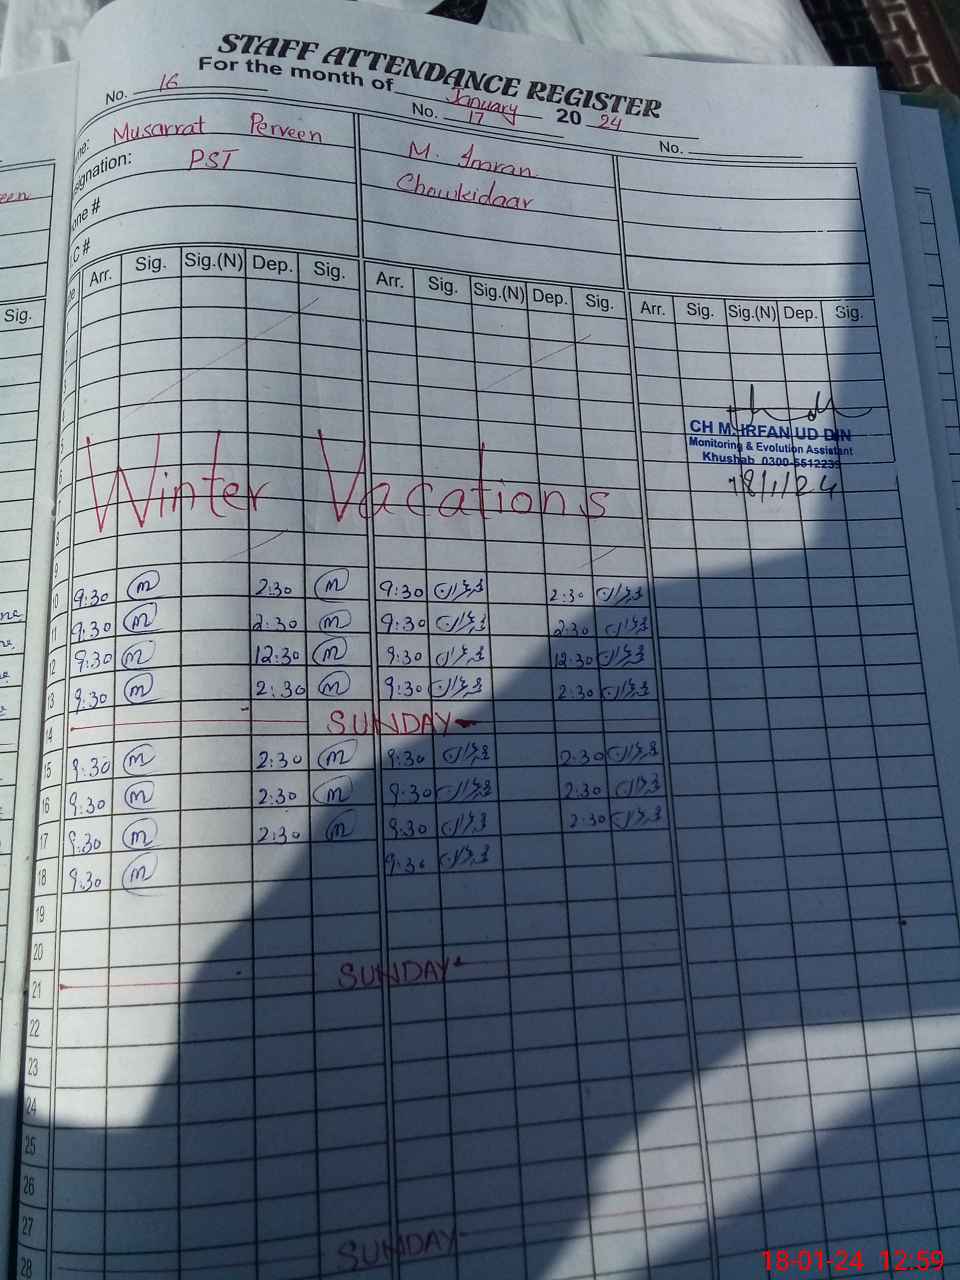 STAFF ATTENDANCE REGISTER
For the month of January 20 24
No. 16 No. 17 No.
me: Musarrat Perveen M. Imran
signation: PST Chowkidaar
one #
.C #
Arr. Sig. Sig.(N) Dep. Sig. Arr. Sig. Sig.(N) Dep. Sig. Arr. Sig. Sig.(N) Dep. Sig.
Sig.
CH M. IRFAN UD DIN
Monitoring & Evolution Assistant
Khushab 0300-5512239
18/1/24
Winter Vacations
8
9
10 9:30 m 2:30 m 9:30 عمران 2:30 عمران
11 9:30 m 2:30 m 9:30 عمران 2:30 عمران
12 9:30 m 12:30 m 9:30 عمران 12:30 عمران
13 9:30 m 2:30 m 9:30 عمران 2:30 عمران
14 SUNDAY
15 9:30 m 2:30 m 9:30 عمران 2:30 عمران
16 9:30 m 2:30 m 9:30 عمران 2:30 عمران
17 9:30 m 2:30 m 9:30 عمران 2:30 عمران
18 9:30 m 9:30 عمران
19
20
21 SUNDAY
22
23
24
25
26
27
28 SUNDAY
18-01-24 12:59